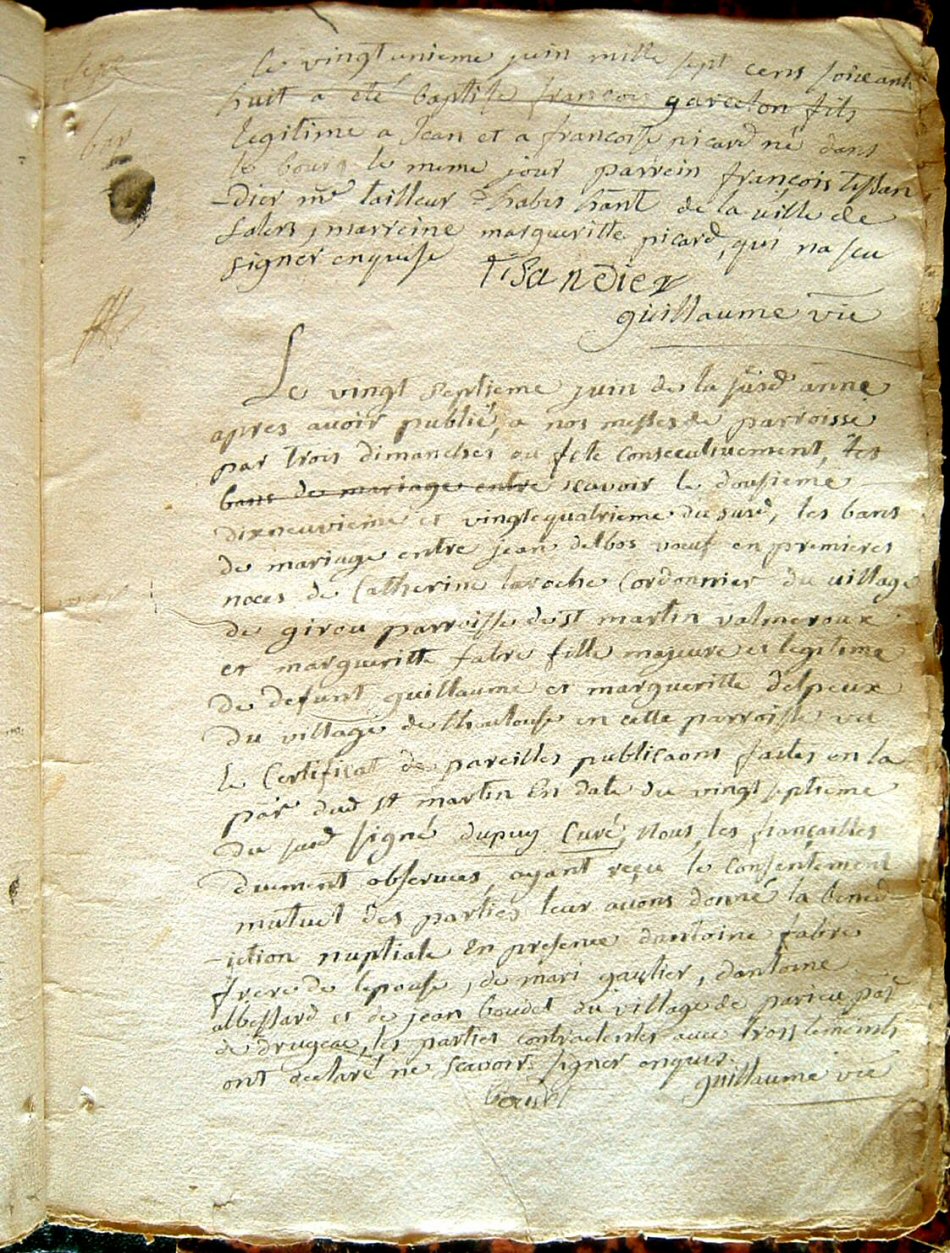 le vingt unieme juin mille sept cens soixante
huit a été baptisé françois garcelon fils
legitime a Jean et a françoise picard né dans
le bourg le meme jour parrein françois tissan
-dier me tailleur habit hant de la ville de
salers, marreine margueritte picard, qui na scu
signer enquise tisandier
guillaume vié
Le vingt septieme juin de la susd anné
apres avoir publié, a nos messes de parroisse
par trois dimanches ou fete consecutivement, les
bans de mariage entre scavoir le dousieme
dixneuvieme et vingtequatrieme du susd, les bans
de mariage entre jean delbos voeuf en premieres
noces de Catherine laroche Cordonnier du village
de girou parroisse de st martin valmeroux
et margueritte fabre fille majeure et legitime
de defunt guillaume et margueritte delpeux
du village de en cette parroisse vu
le Certificat de pareilles publicaons faites en la
par dud st martin En date du vingt septieme
du susd signé dupuy Curé, Nous, les fiançailles
duement observées, ayant reçu le consentement
mutuel des parties leur avons donné la bened
-iction nuptiale En presence dantoine fabre
frere de lepouse, de mari gautier, dantoine
albessard et de jean boudet du village de parieu par
de drugeac, les parties contractentes avec
ont declaré ne scavoir signer enquis.
guillaume vié